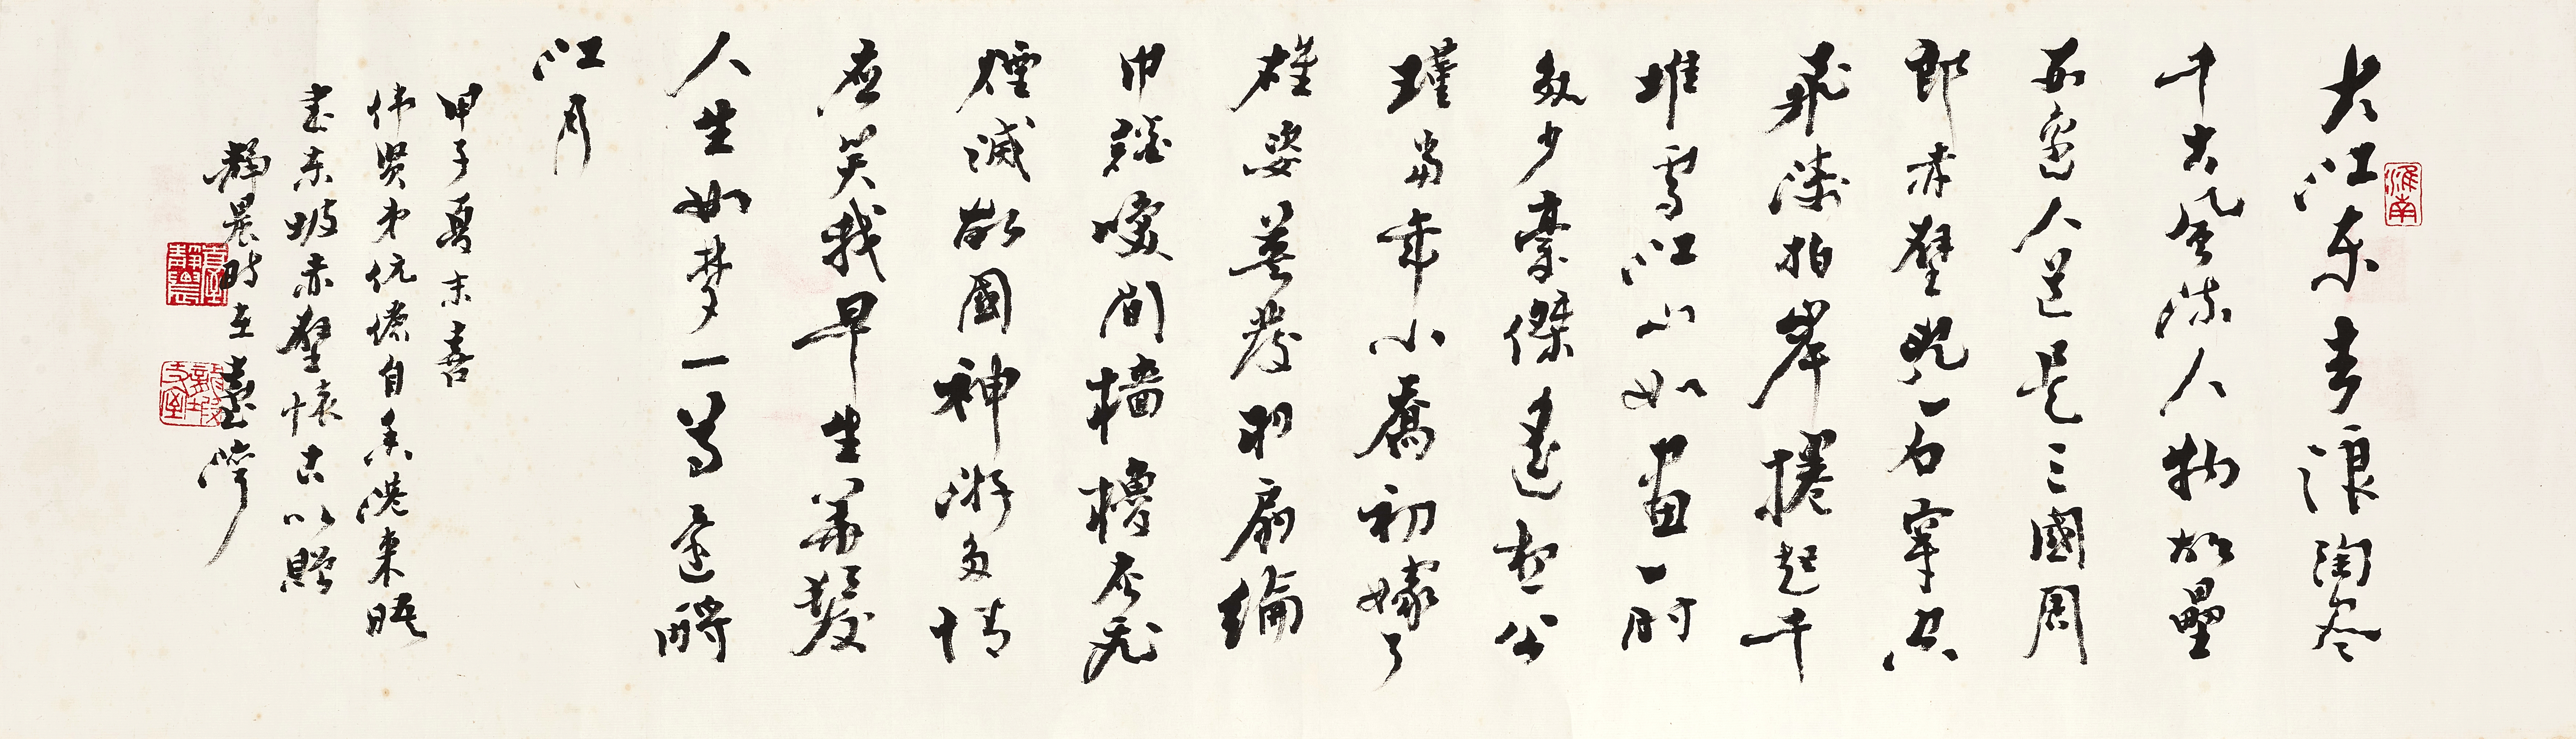 淮南
大江東去浪淘盡
千古風流人物故壘
西邊人道是三國周
郎赤壁亂石穿空
飛濤拍岸捲起千
堆雪江山如畫一時
多少豪傑遙想公
瑾當年小喬初嫁了
雄姿英發羽扇綸
巾談咲間檣櫓灰飛
煙滅故國神游多情
應笑我早生華髮
人生如夢一尊還酹
江月
甲子夏末喜
偉賢弟伉儷自香港來晤
書東坡赤壁懷古以贈
靜農時在臺灣
臺靜農
龍坡丈室